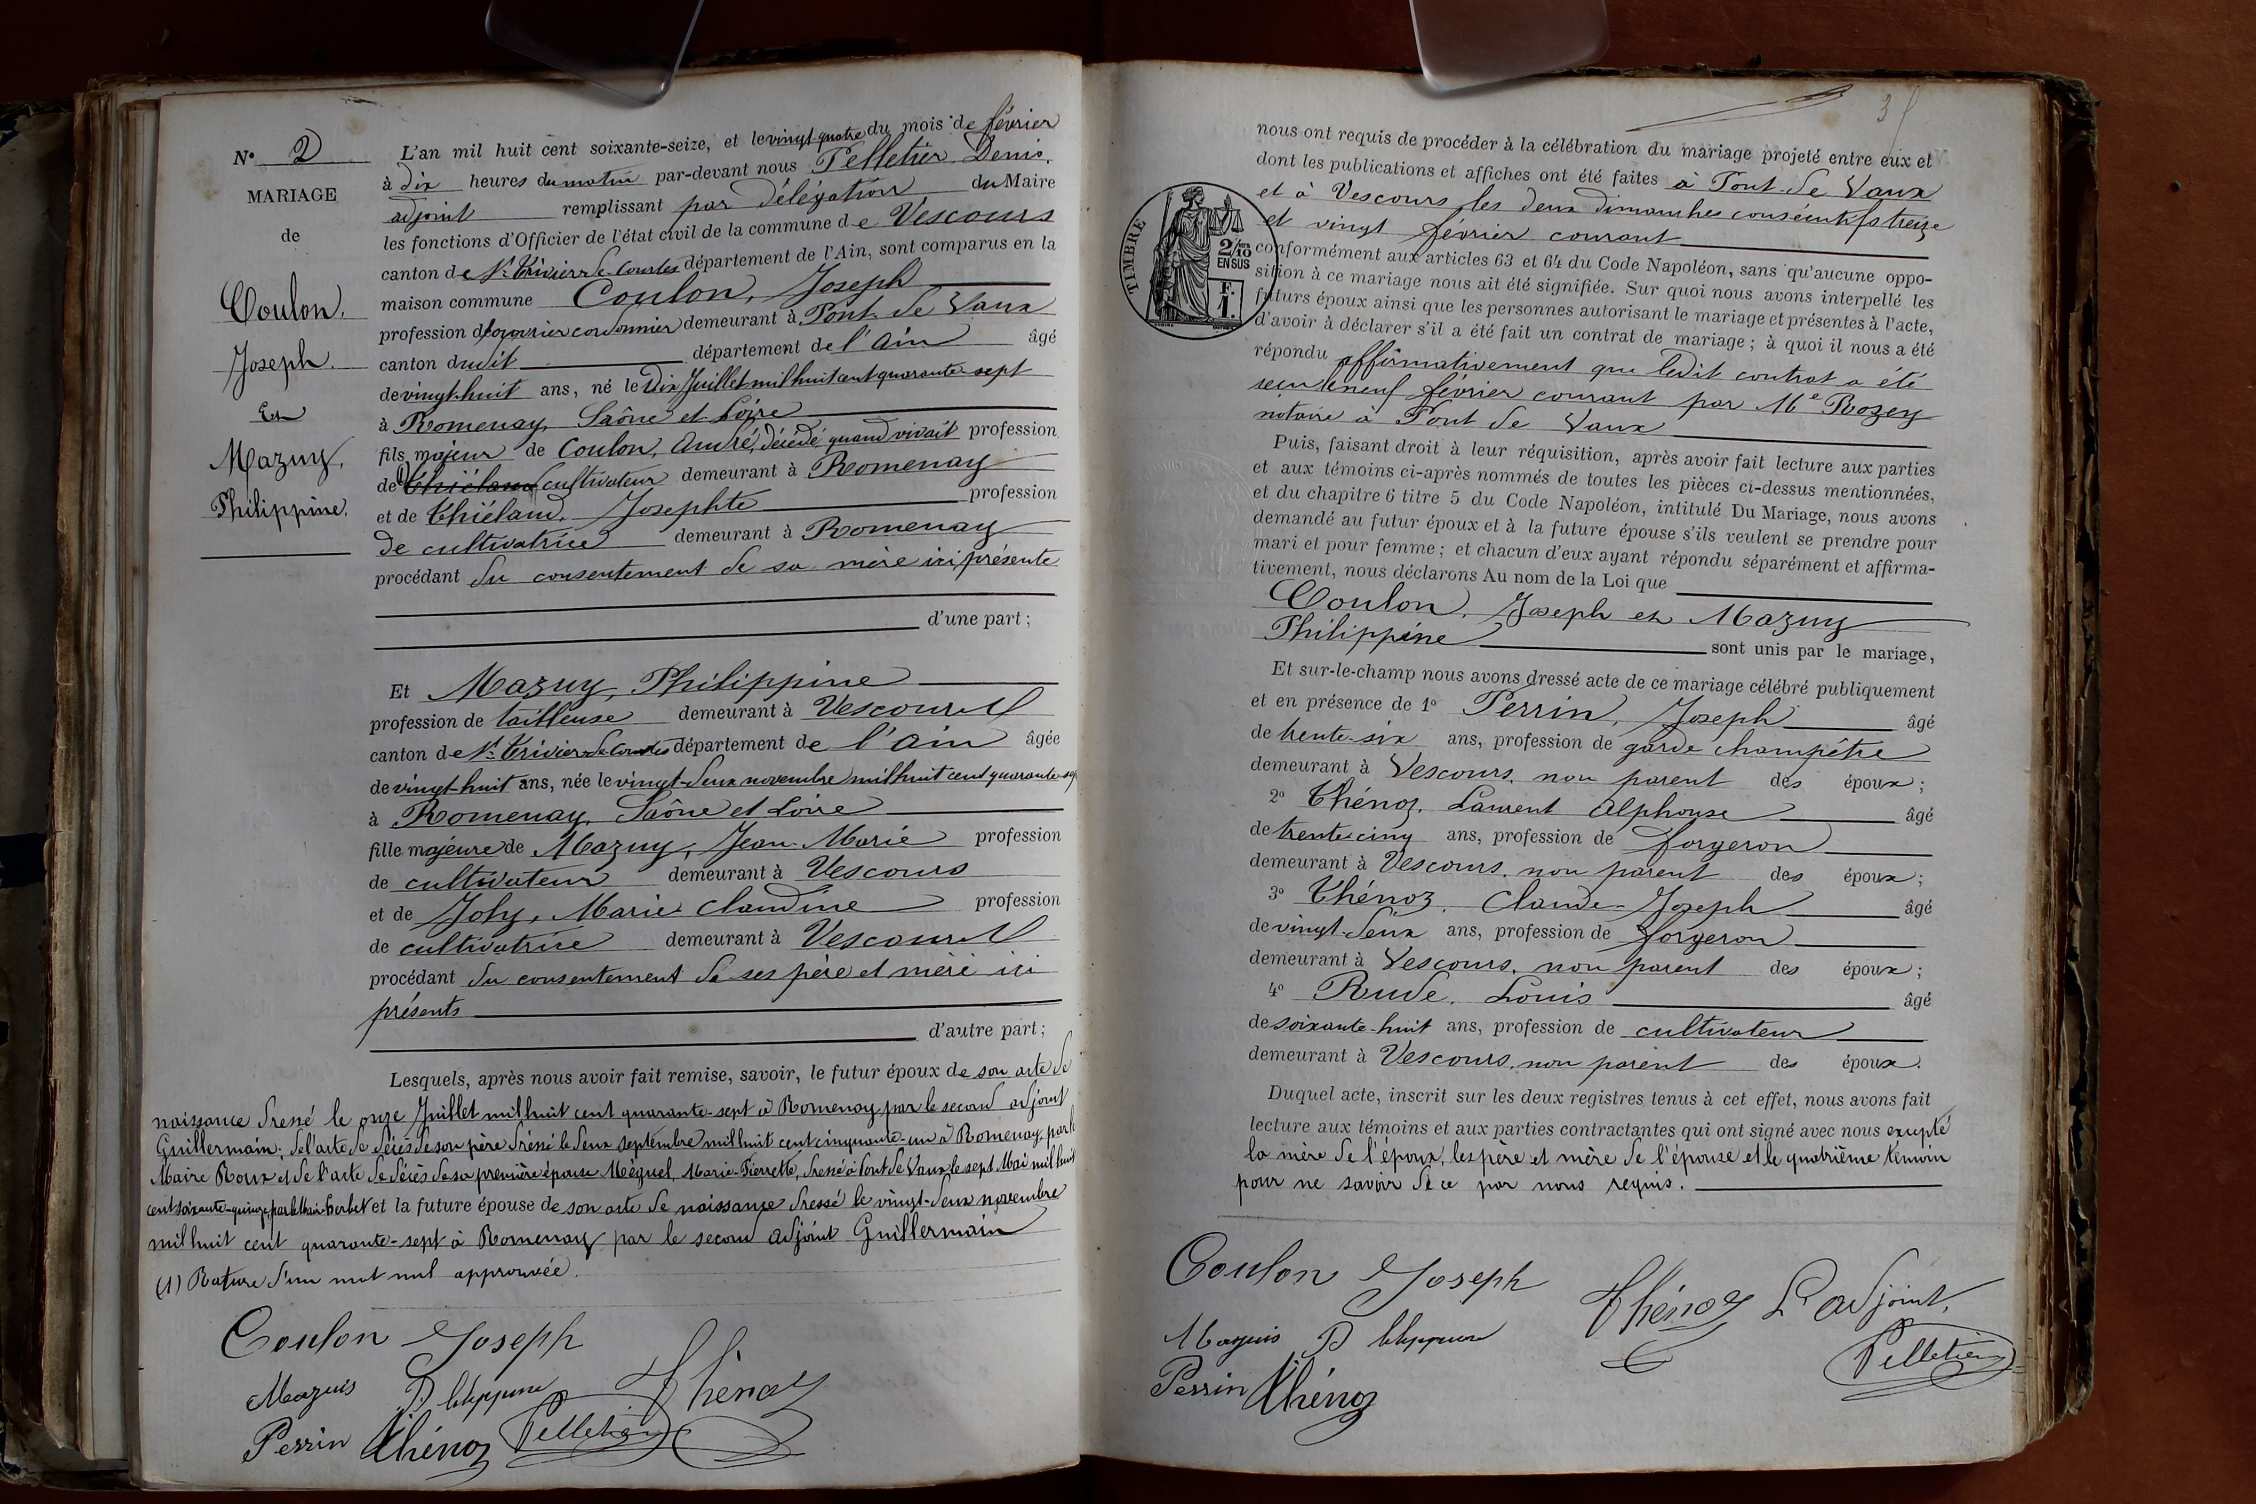 N° 2
MARIAGE
de
Coulon,
Joseph.
Et
Mazuy,
Philippine.
L'an mil huit cent soixante-seize, et le vingt-quatre du mois de février
à dix heures du matin par-devant nous Pelletier Denis,
adjoint remplissant par délégation du Maire
les fonctions d'Officier de l'état civil de la commune de Vescours
canton de St Trivier de Courtes département de l'Ain, sont comparus en la
maison commune Coulon, Joseph
profession d'ouvrier cordonnier demeurant à Pont de Vaux
canton dudit département de l'Ain âgé
de vingt-huit ans, né le Dix Juillet mil huit cent quarante-sept
à Romenay, Saône et Loire
fils majeur de Coulon, André, décédé quand vivait profession
de Thiéland cultivateur demeurant à Romenay
et de Thiéland, Josephte profession
de cultivatrice demeurant à Romenay
procédant du consentement de sa mère ici présente
d'une part;
Et Mazuy, Philippine
profession de tailleuse demeurant à Vescours
canton de St Trivier de Courtes département de l'Ain âgée
de vingt-huit ans, née le vingt-deux novembre mil huit cent quarante-sep
à Romenay, Saône et Loire
fille majeure de Mazuy, Jean-Marie profession
de cultivateur demeurant à Vescours
et de Joly, Marie Claudine profession
de cultivatrice demeurant à Vescours
procédant du consentement de ses père et mère ici
présents
d'autre part;
Lesquels, après nous avoir fait remise, savoir, le futur époux de son acte de
naissance dressé le onze Juillet mil huit cent quarante-sept à Romenay par le second adjoint
Guillermain; de l'acte de décès de son père dréssé le deux septembre mil huit cent cinquante-un à Romenay, par le
Maire Roux et de l'acte de décès de sa première épouse Méguel, Marie-Pierrette, dressé à Pont de Vaux le sept Mai mil huit
cent soixante-quinze, par le Maire et la future épouse de son acte de naissance dressé le vingt-deux novembre
mil huit cent quarante-sept à Romenay par le second adjoint Guillermain
(1) Rature d'un mot nul approuvée.
Coulon Joseph
Mazuis Phleppine Thénoz
Perrin Thénoz Pelletier
3
nous ont requis de procéder à la célébration du mariage projeté entre eux et
dont les publications et affiches ont été faites à Pont de Vaux
et à Vescours les deux dimanches consécutifs treize
et vingt février courant
TIMBRE
2/10 EN SUS
F. 1.
conformément aux articles 63 et 64 du Code Napoléon, sans qu'aucune oppo-
sition à ce mariage nous ait été signifiée. Sur quoi nous avons interpellé les
futurs époux ainsi que les personnes autorisant le mariage et présentes à l'acte,
d'avoir à déclarer s'il a été fait un contrat de mariage; à quoi il nous a été
répondu affirmativement que ledit contrat a été
reçu le neuf février courant par Me Rozey
notaire à Pont de Vaux
Puis, faisant droit à leur réquisition, après avoir fait lecture aux parties
et aux témoins ci-après nommés de toutes les pièces ci-dessus mentionnées,
et du chapitre 6 titre 5 du Code Napoléon, intitulé Du Mariage, nous avons
demandé au futur époux et à la future épouse s'ils veulent se prendre pour
mari et pour femme; et chacun d'eux ayant répondu séparément et affirma-
tivement, nous déclarons Au nom de la Loi que
Coulon, Joseph et Mazuy
Philippine sont unis par le mariage,
Et sur-le-champ nous avons dressé acte de ce mariage célébré publiquement
et en présence de 1° Perrin, Joseph âgé
de trente-six ans, profession de garde champêtre
demeurant à Vescours, non parent des époux;
2° Thénoz, Laurent Alphonse âgé
de trente-cinq ans, profession de forgeron
demeurant à Vescours, non parent des époux;
3° Thénoz, Claude-Joseph âgé
de vingt-deux ans, profession de forgeron
demeurant à Vescours, non parent des époux;
4° Rude, Louis âgé
de soixante-huit ans, profession de cultivateur
demeurant à Vescours, non parent des époux.
Duquel acte, inscrit sur les deux registres tenus à cet effet, nous avons fait
lecture aux témoins et aux parties contractantes qui ont signé avec nous excepté
la mère de l'époux, les père et mère de l'épouse et le quatrième témoin
pour ne savoir de ce par nous requis.
Coulon Joseph Thénoz L'adjoint,
Mazuis Phleppine Pelletier
Perrin Thénoz